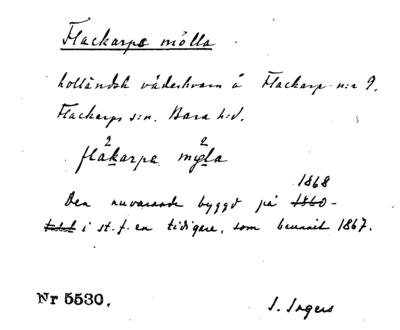 Flackarps mölla
holländsk väderkvarn å Flackarp n:r 9,
Flackarps s:n. Bara h:d.
2 2
flakarpa mysla
1868
Den nuvarande byggd på 1860-
talet i st. f. en tidigare, som brunnit 1867.
Nr 5530.
I. Ingers